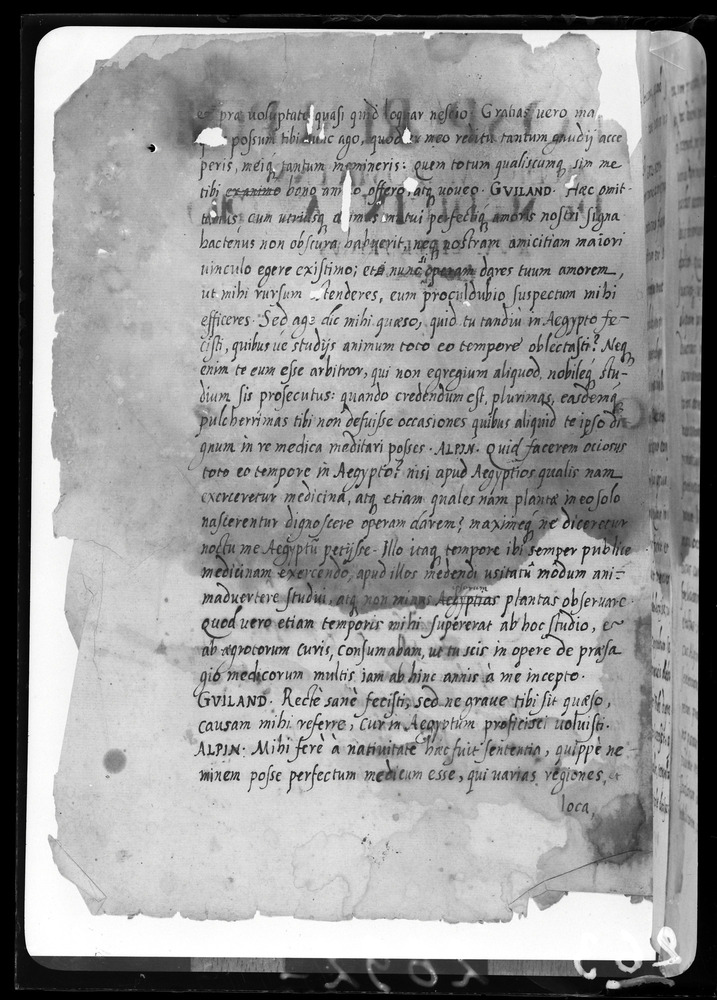 præ voluptate quasi quid loquar nescio. Gratias vero ma
possum tibi nunc ago, quod meo reditu tantum gaudij acce
peris, meiq tantum memineris: quem totum qualiscumq sim me
tibi ex animo bono offero, atq voveo. GVILAND. Hæc omit-
cum utriusq mutui perfectiq amoris nostri signa
hactenus non obscura habuerit, neq nostram amicitiam maiori
vinculo egere existimo; nunc si operam dares tuum amorem,
ut mihi rursum ostenderes, eum proculdubio suspectum mihi
efficeres. Sed age dic mihi quæso, quid tu tandiu in Aegypto fe-
cisti, quibus ve studijs animum toto eo tempore oblectasti? Neq
enim te eum esse arbitror, qui non egregium aliquod, nobileq stu-
dium sis prosecutus: quando credendum est, plurimas, easdemq
pulcherrimas tibi non defuisse occasiones quibus aliquid te ipso di-
gnum in re medica meditari posses. ALPIN. Quid facerem ociosus
toto eo tempore in Aegypto? nisi apud Aegyptios qualis nam
exerceretur medicina, atq etiam quales nam plantæ in eo solo
nascerentur dignoscere operam darem? maximeq ne diceretur
noctu me Aegyptũ petijsse. Illo itaq tempore ibi semper publice
medicinam exercendo, apud illos medendi usitatũ modum ani-
madvertere studui, atq non minus Aegyptias plantas observare.
Quod vero etiam temporis mihi supererat ab hoc studio, &
ab ægrotorum curis, consumabam, ut tu scis in opere de præsa
gio medicorum multis iam ab hinc annis à me incepto.
GVILAND. Rectè sanè fecisti, sed ne grave tibi sit quæso,
causam mihi referre, cur in Aegyptum proficisci voluisti.
ALPIN. Mihi ferè à nativitate hæc fuit sententia, quippe ne
minem posse perfectum medicum esse, qui varias regiones,
loca,